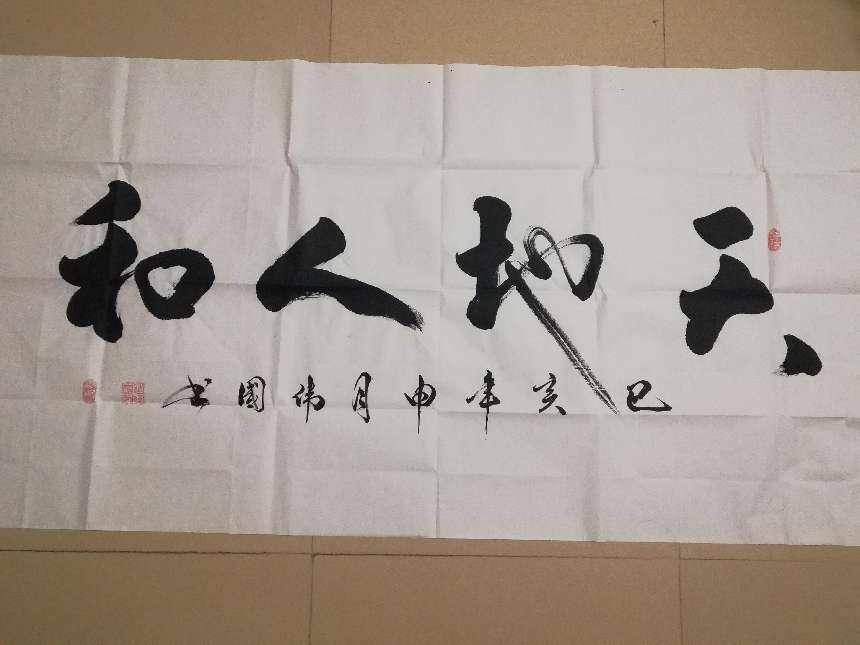 天地人和
己亥年申月伟国书